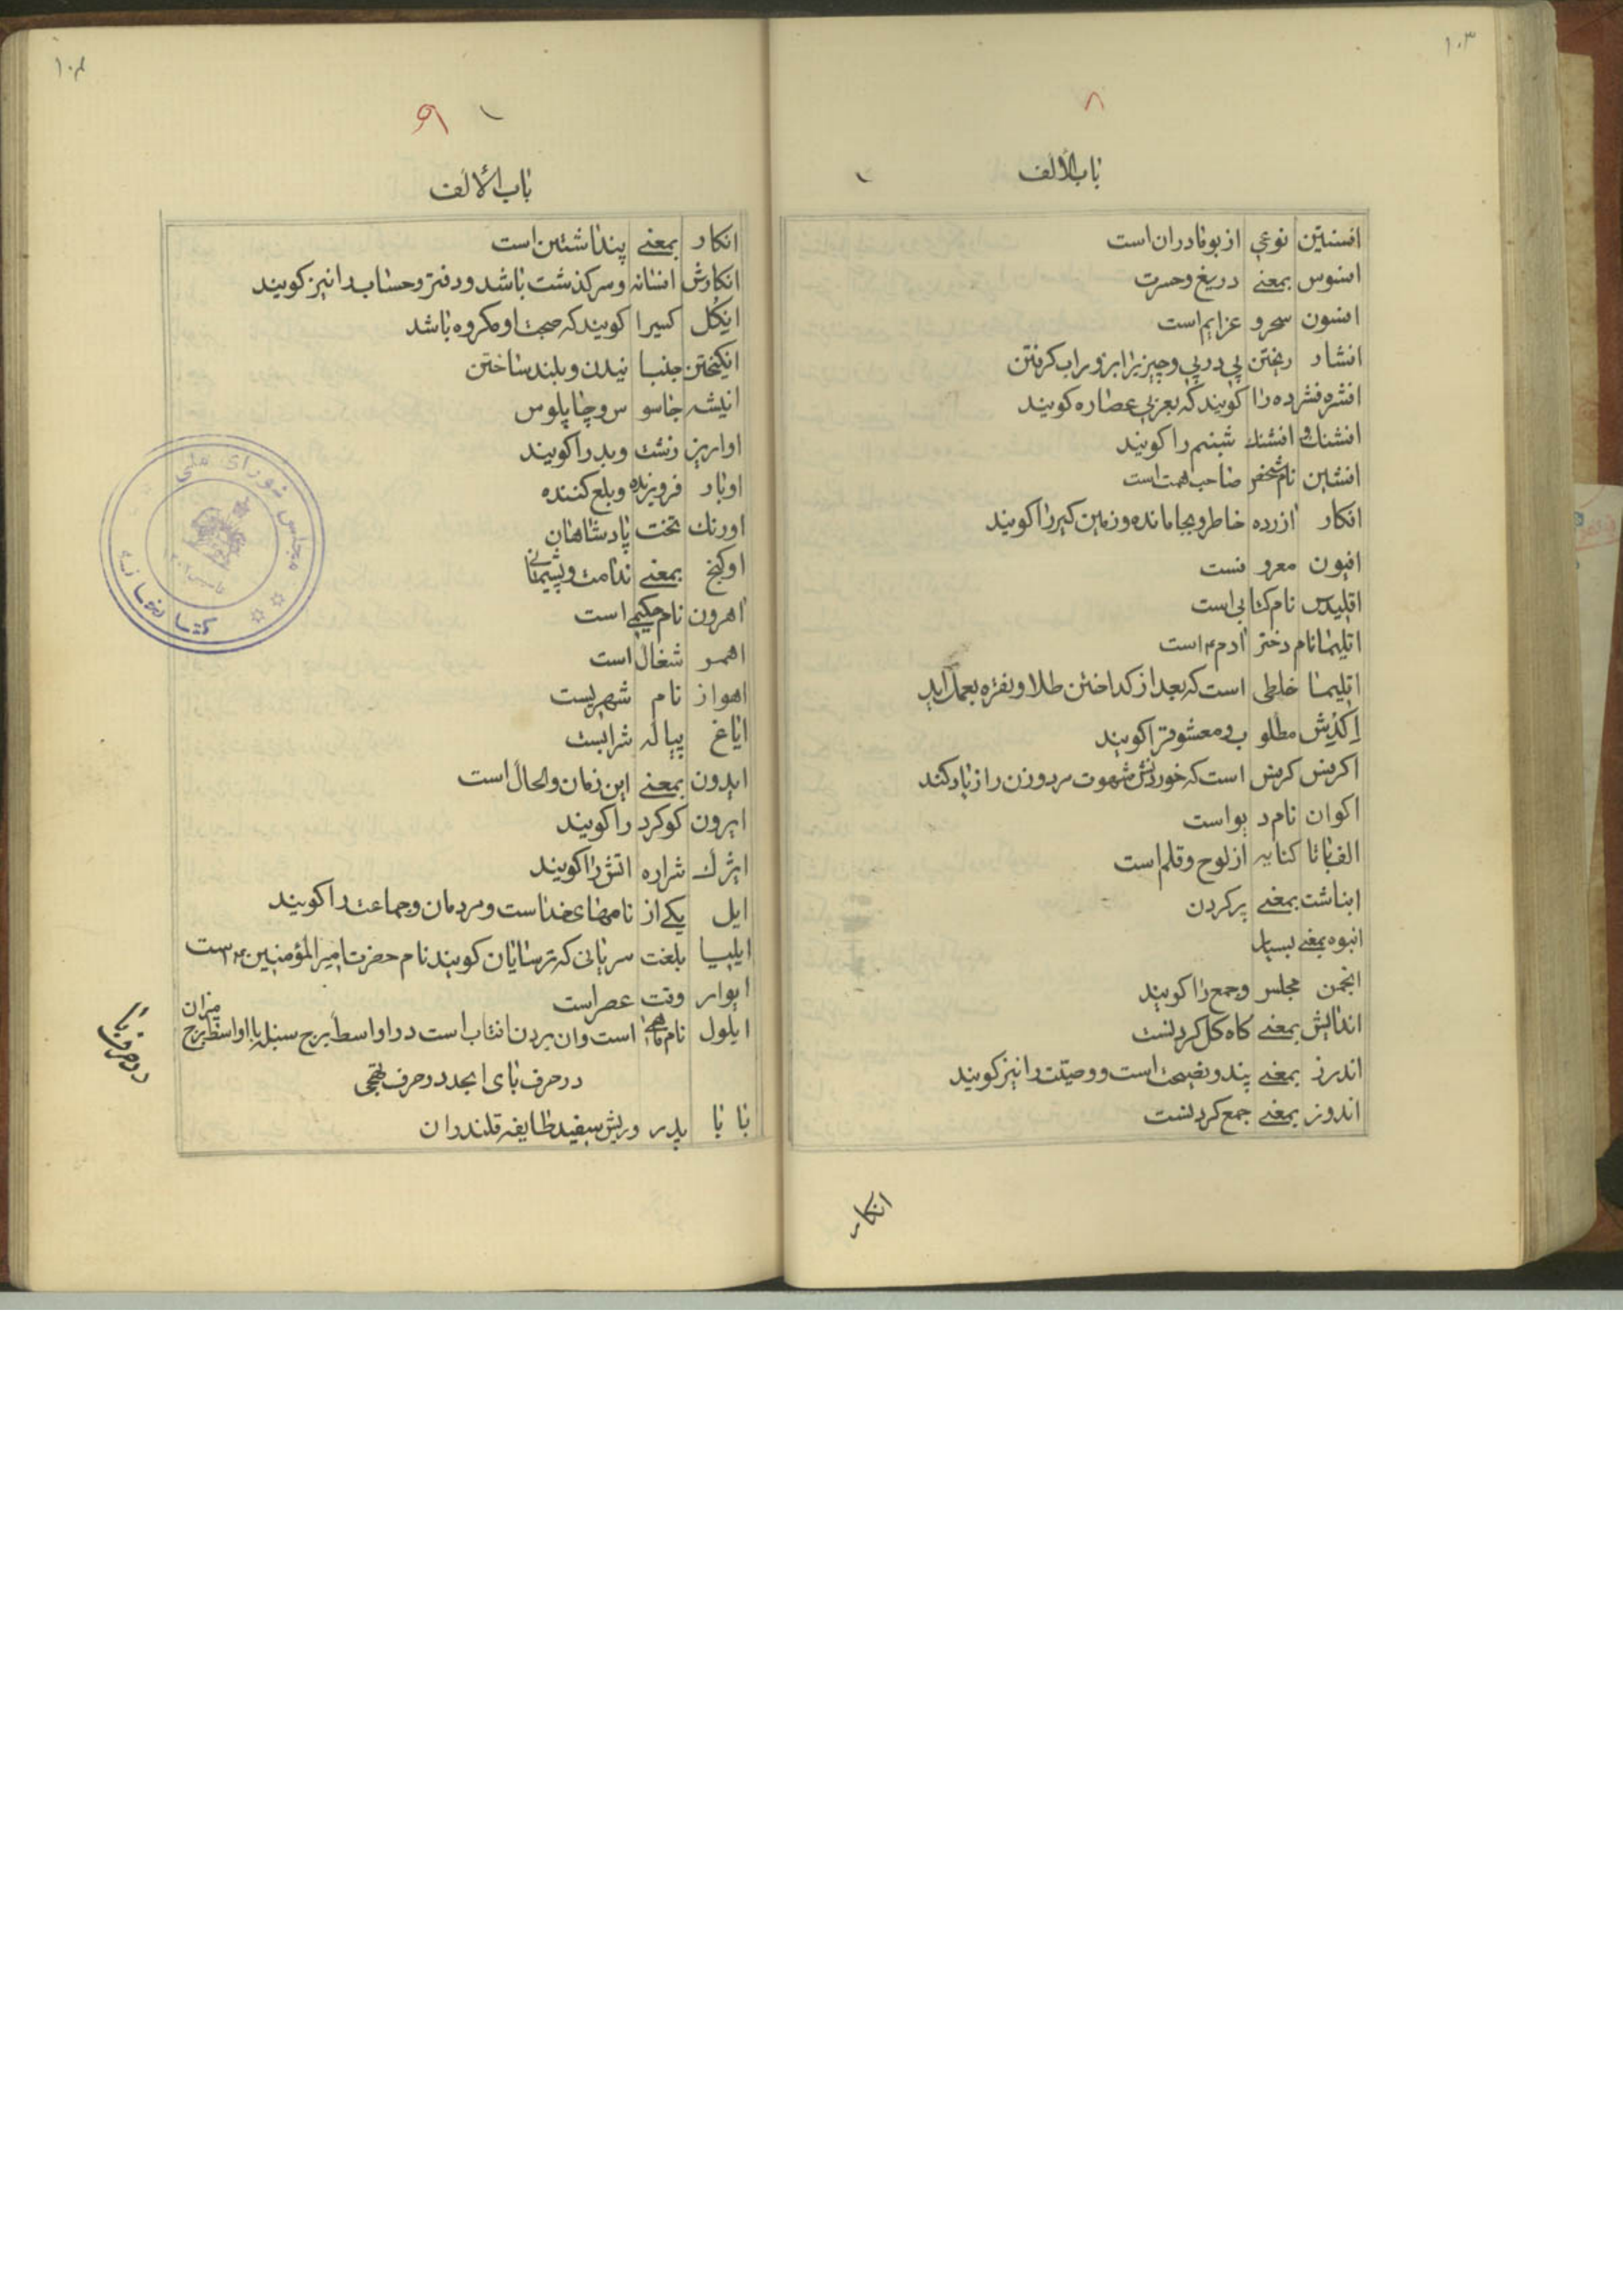 ۱۰۳
۸
باب الالف
افسنتین نوعی از بومادران است
افسوس بمعنی دریغ و حسرت
افسون سحر و عزایم است
افشار ریختن پی در پی و چیزیرا بزور اب کرفتن
افشره فشرده را کویند که بعربی عصاره کویند
افشنک و افشنک شبنم را کویند
افشین نام شخص صاحب همت است
افکار ازرده خاطر و بجا مانده و زمین کیر را کویند
افیون معروفست
اقلیدس نام کتابی است
اقلیما نام دختر ادم ۴ است
اقلیمیا خلطی است که بعد از کداختن طلا و نقره بعمل اید
اکدش مطلوب و معشوقرا کویند
اکرفس کرفس است که خوردنش شهوت مرد و زن را زیاد کند
اکوان نام دیو است
الف با تا کنایه از لوح و قلم است
انباشت بمعنی پر کردن
انبوه بمعنی بسیار
انجمن مجلس و جمع را کویند
اندایش بمعنی کاه کل کردنست
اندرز بمعنی پند و نصیحت است و وصیّت را نیز کویند
اندوز بمعنی جمع کردنست
انکار
۱۰۴
۹
باب الالف
انکار بمعنی پنداشتن است
انکارش افسانه و سرکذشت باشد و دفتر و حساب را نیز کویند
انکل کسیرا کویند که صحبت او مکروه باشد
انکیختن جنبانیدن و بلند ساختن
انیشه جاسوس و چاپلوس
اوارین زشت و بد را کویند
اوبار فرو برنده و بلع کننده
اورنک تخت پادشاهان
اوکنج بمعنی ندامت و پشیمانی
اهرون نام حکیمی است
اهمر شغال است
اهواز نام شهریست
ایاغ پیاله شرابست
ایدون بمعنی این زمان و الحال است
ایرون کوکرد را کویند
ایژک شراره اتش را کویند
ایل یکی از نامهای خداست و مردمان و جماعت را کویند
ایلیا بلغت سریانی که ترسایان کویند نام حضرت امیر المؤمنین ۴ است
ایوار وقت عصر است
ایلول نام ماهی است و ان بردن افتاب است در اواسط برج سنبله یا اواسط برج میزان
در حرف بای ابجد در حرف تهجی
بابا پدر و ریش سفید طایفه قلندران
در حرف با
کتابخانه
مجلس شورای ملی